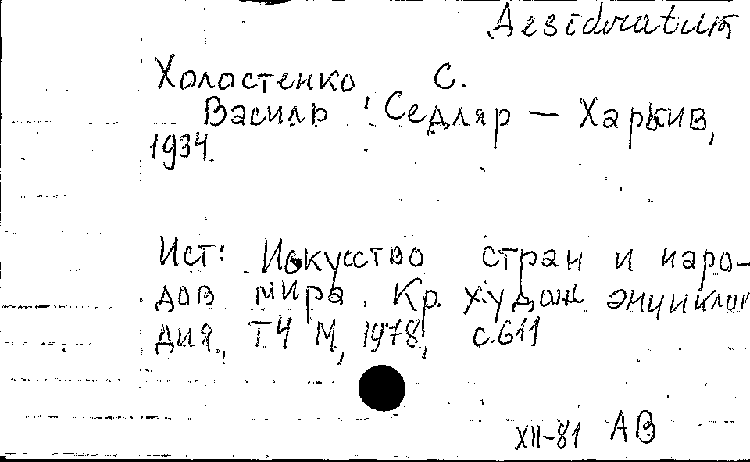 Desideratum
Холостенко С.
Василь Седляр — Харькив,
1934.
Ист: Искусство стран и наро-
дов мира. Кр. худож. энцикло
дия, Т4 М, 1978, с.611
XII-81 АВ